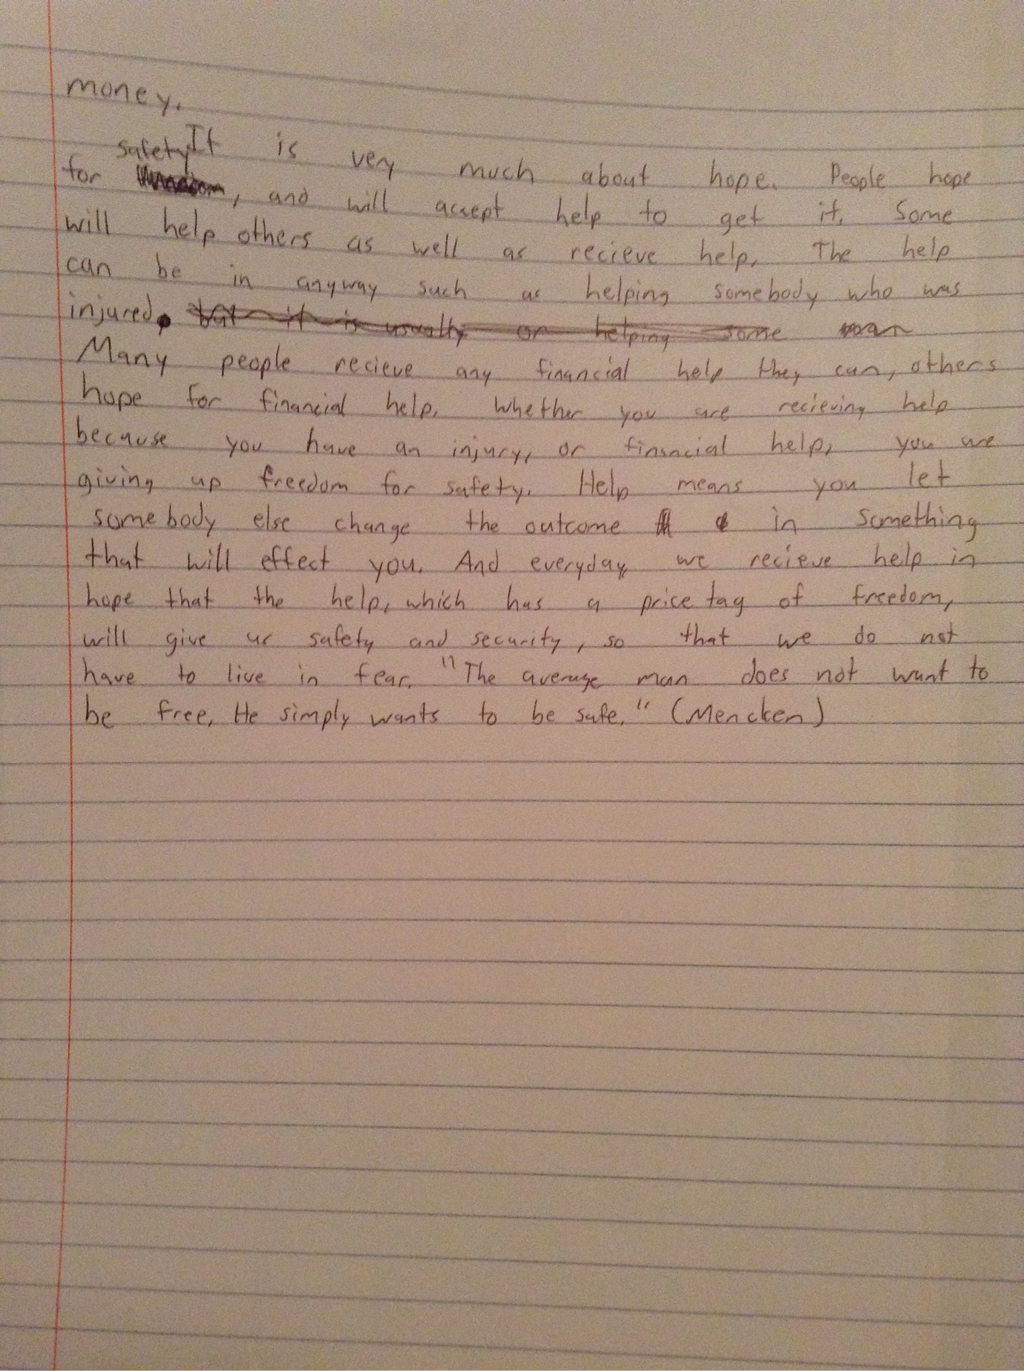 money.
It is very much about hope. People hope
for safety, and will accept help to get it. Some
will help others as well as recieve help. The help
can be in anyway such as helping somebody who was
injured. but it is usually or helping some
Many people recieve any financial help they can, others
hope for financial help. Whether you are recieving help
because you have an injury, or financial help, you are
giving up freedom for safety. Help means you let
somebody else change the outcome in something
that will effect you. And everyday we recieve help in
hope that the help, which has a price tag of freedom,
will give us safety and security, so that we do not
have to live in fear. "The average man does not want to
be free. He simply wants to be safe." (Mencken)